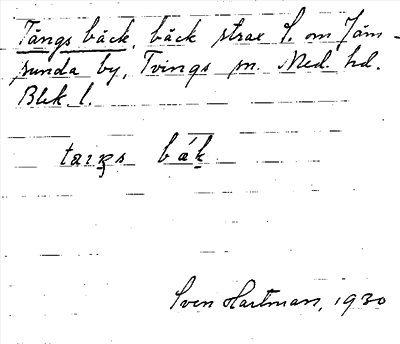 Tångs bäck, bäck strax S. om Jäm-
sunda by, Tvings sn. Med. hd.
Blek. l.
bäk
Sven Hartman, 1930